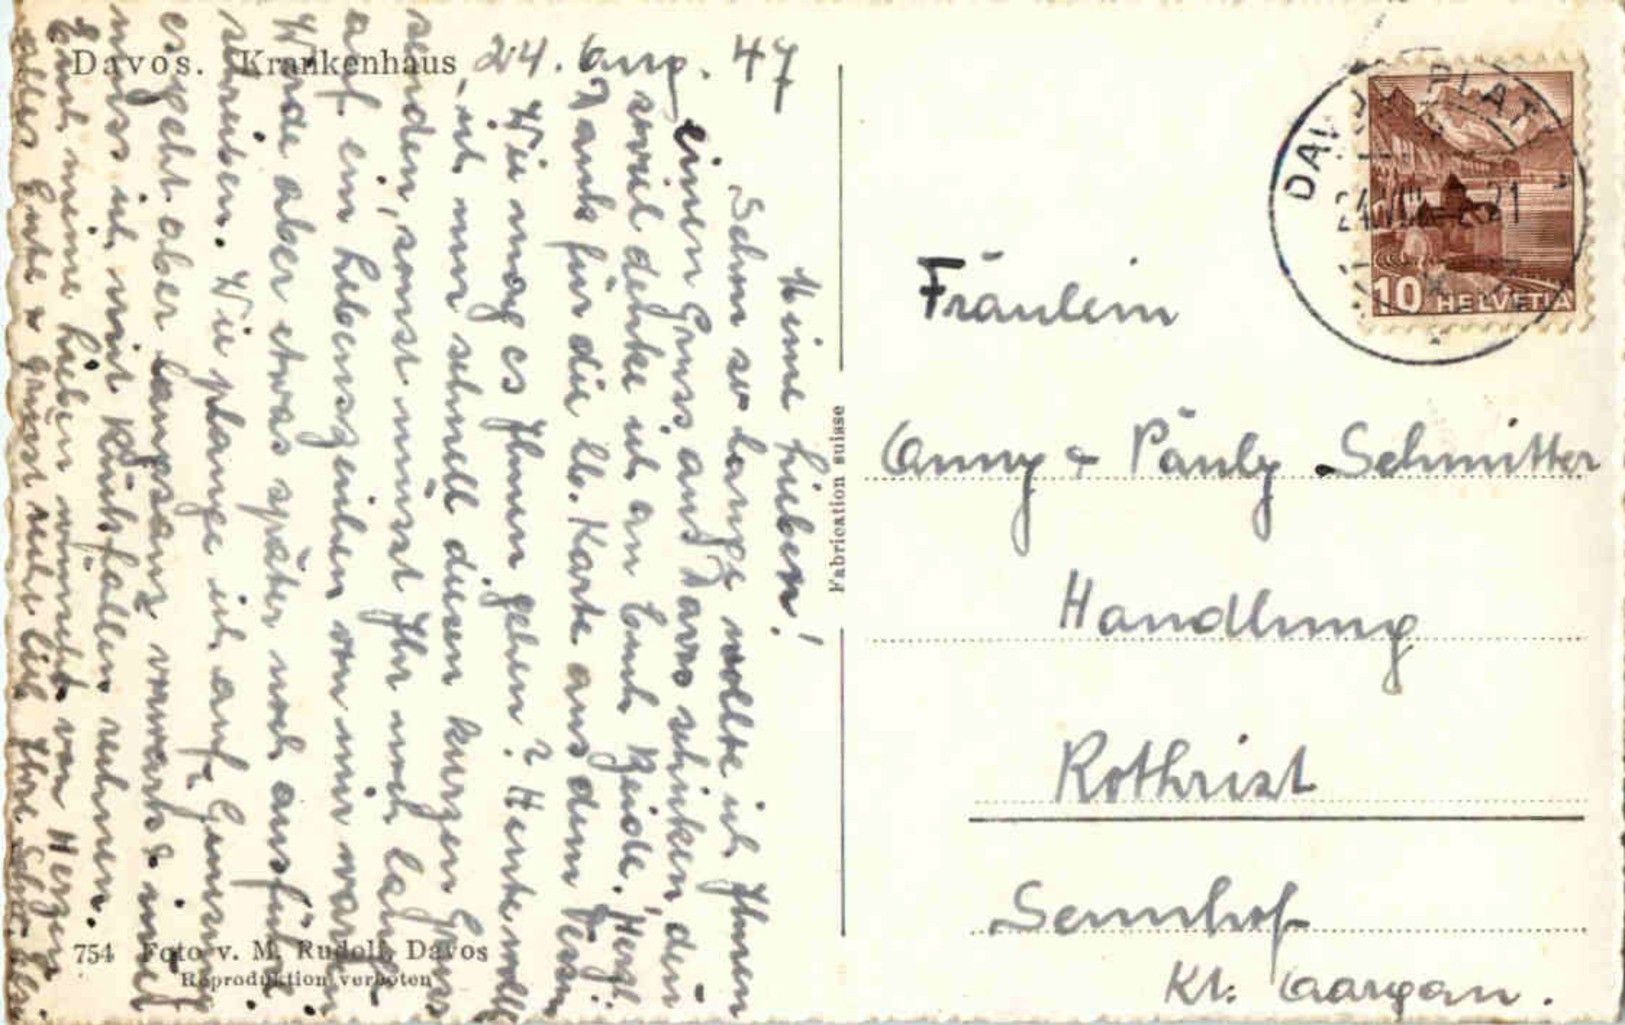 Davos. Krankenhaus
24. Aug. 47
Meine Lieben!
Schon so lange wollte ich Ihnen
einen Gruss aus Davos schicken, denn
soviel denke ich an Euch Beide. Herzl.
Dank für die lb. Karte aus dem Tessin
Wie mag es Ihnen gehen? Heute wollte
ich nur schnell diesen kurzen Gruss
senden, sonst müsst Ihr noch lange
auf ein Lebenszeichen von mir warten
Werde aber etwas später noch ausführl.
schreiben. Wie plange ich auf Genesung
es geht aber langsam vorwärts & immer
muss ich mit Rückfällen rechnen.
Euch meine Lieben wünscht von Herzen
alles Gute & grüsst recht lieb Ihre
754 Foto v. M. Rudolf, Davos
Reproduktion verboten
Fabrication suisse
DAVOS PLATZ
24.VIII. 21
10 HELVETIA
Fräulein
Anny & Päuly Schmitter
Handlung
Rothrist
Sennhof
Kt. Aargau.